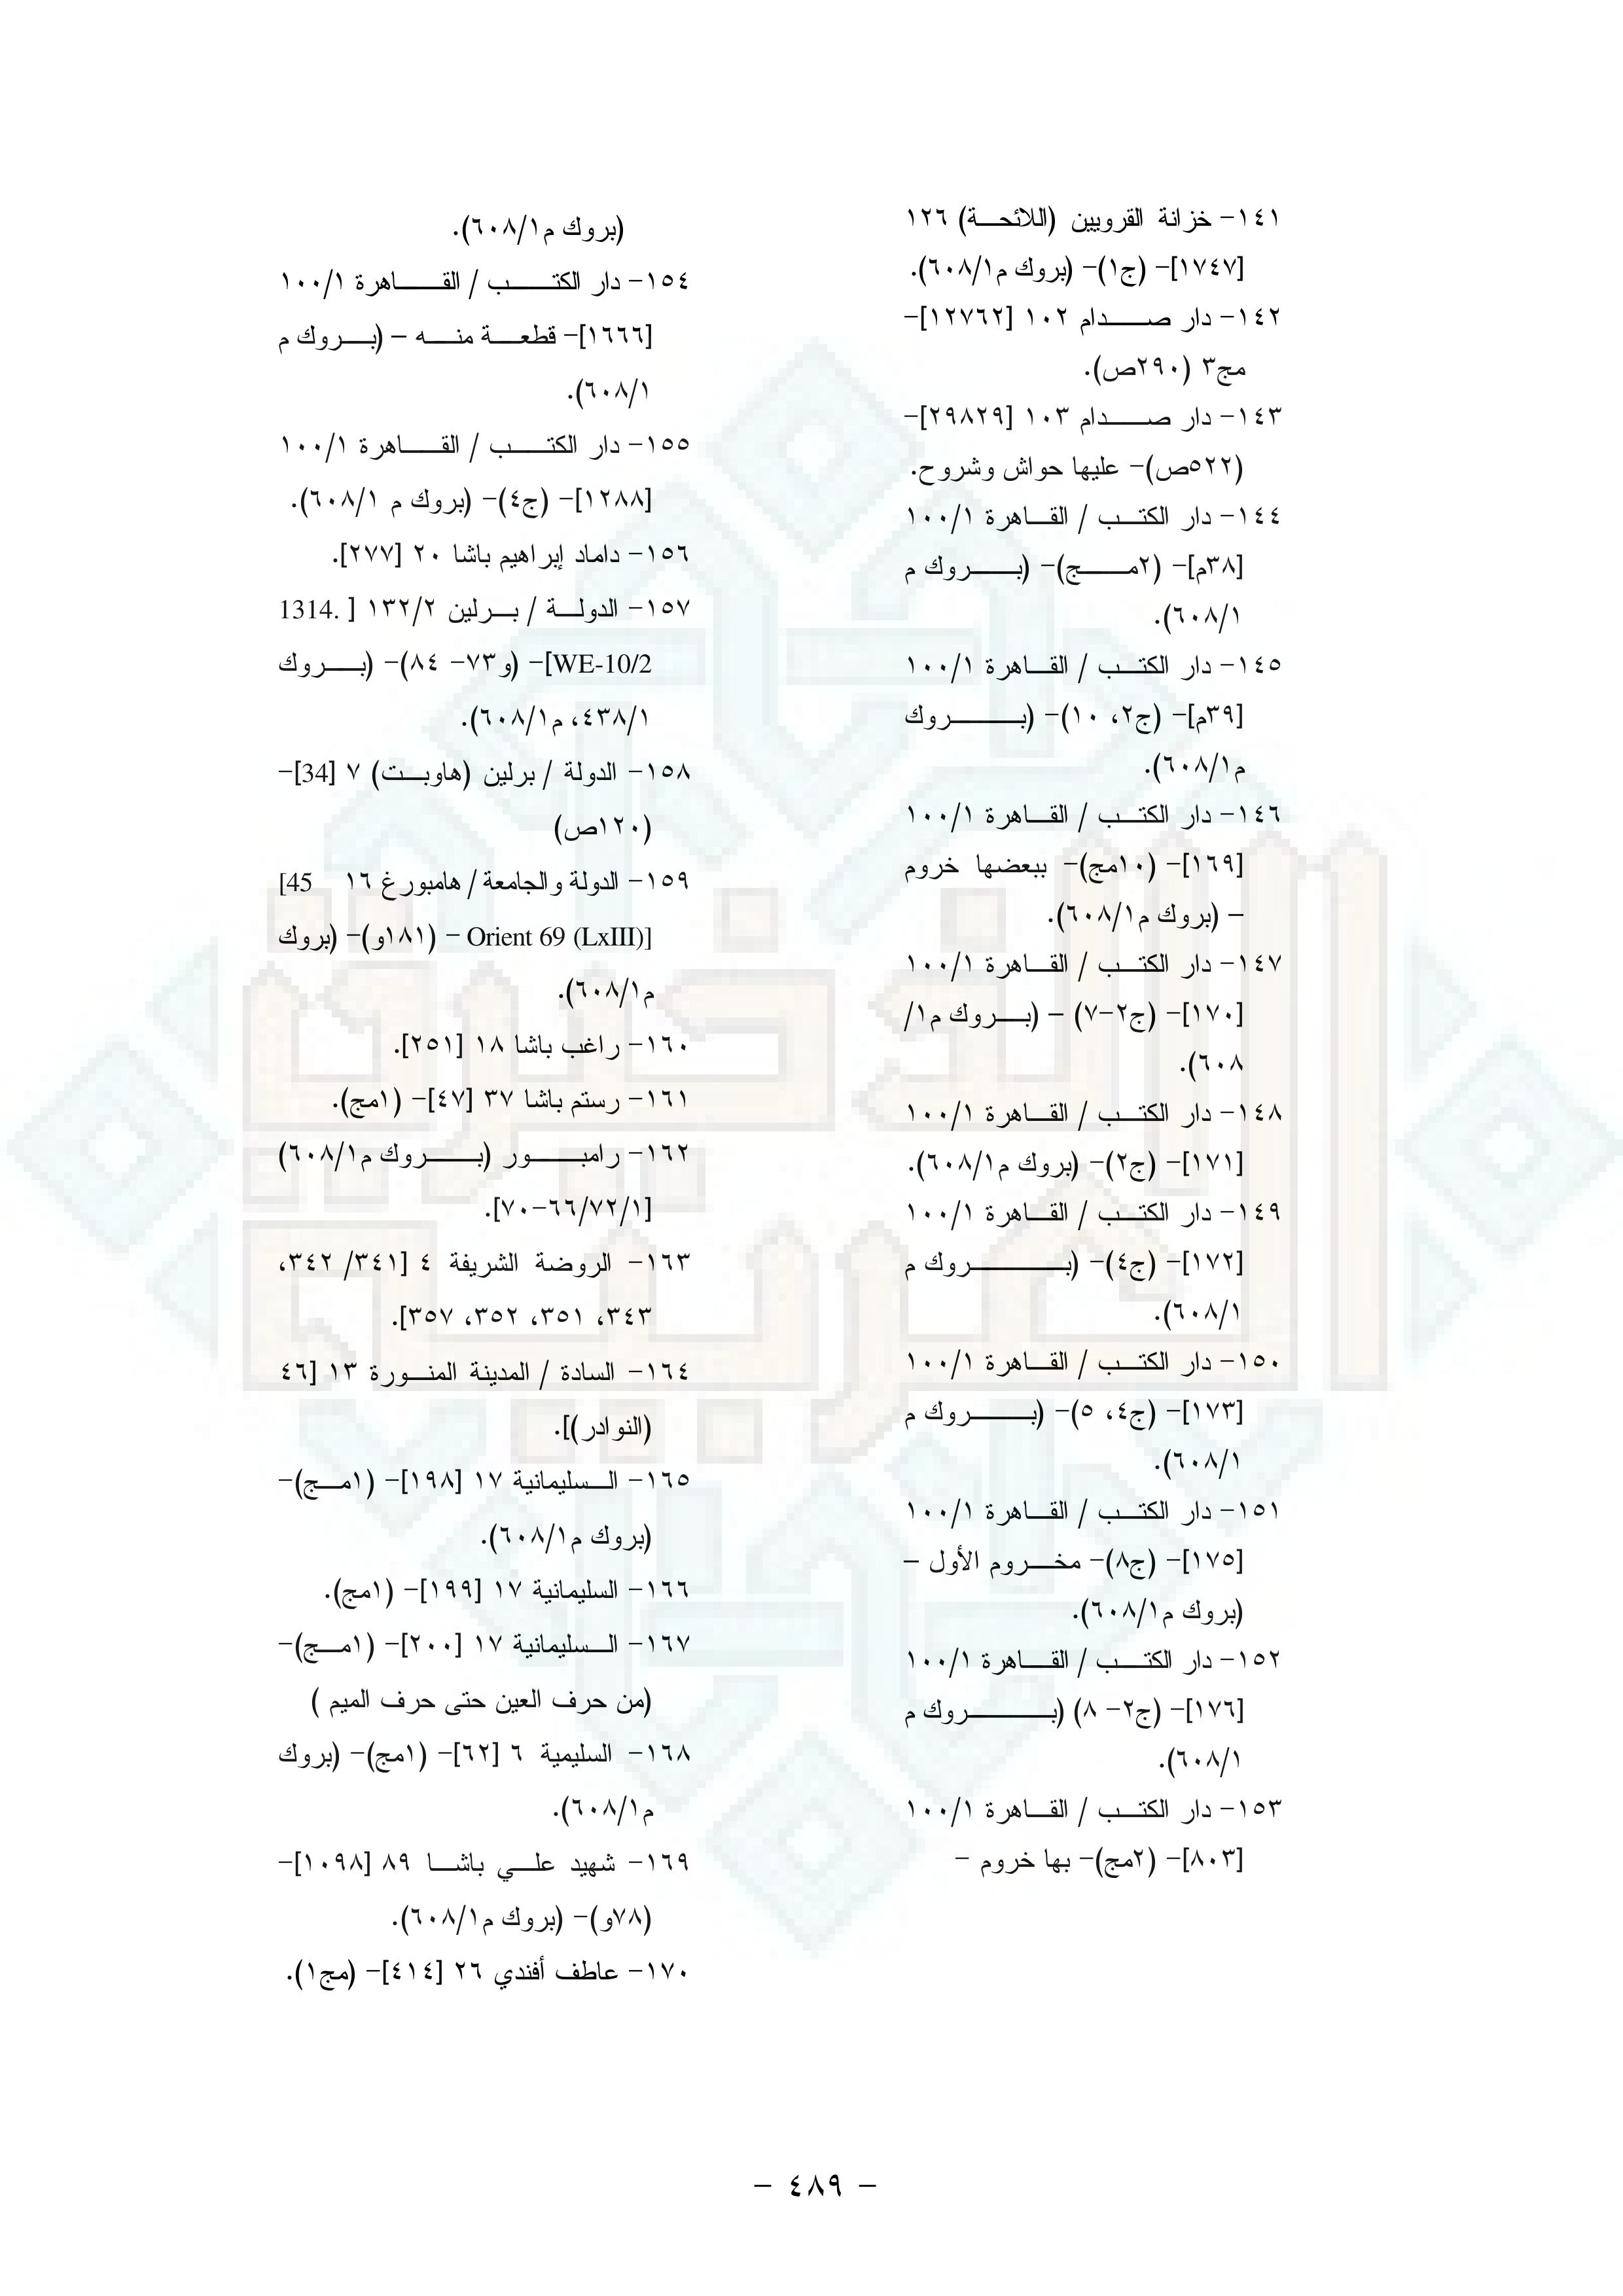 ١٤١- خزانة القرويين (اللائحة) ١٢٦
[١٧٤٧]- (ج١)- (بروك م٦٠٨/١).
١٤٢- دار صدام ١٠٢ [١٢٧٦٢]-
مج٣ (٢٩٠ص).
١٤٣- دار صدام ١٠٣ [٢٩٨٢٩]-
(٥٢٢ص)- عليها حواش وشروح.
١٤٤- دار الكتب / القاهرة ١٠٠/١
[٣٨م]- (٢مج)- (بروك م
٦٠٨/١).
١٤٥- دار الكتب / القاهرة ١٠٠/١
[٣٩م]- (ج٢، ١٠)- (بروك
م٦٠٨/١).
١٤٦- دار الكتب / القاهرة ١٠٠/١
[١٦٩]- (١٠مج)- ببعضها خروم
– (بروك م٦٠٨/١).
١٤٧- دار الكتب / القاهرة ١٠٠/١
[١٧٠]- (ج٢-٧) – (بروك م١/
٦٠٨).
١٤٨- دار الكتب / القاهرة ١٠٠/١
[١٧١]- (ج٢)- (بروك م٦٠٨/١).
١٤٩- دار الكتب / القاهرة ١٠٠/١
[١٧٢]- (ج٤)- (بروك م
٦٠٨/١).
١٥٠- دار الكتب / القاهرة ١٠٠/١
[١٧٣]- (ج٤، ٥)- (بروك م
٦٠٨/١).
١٥١- دار الكتب / القاهرة ١٠٠/١
[١٧٥]- (ج٨)- مخروم الأول –
(بروك م٦٠٨/١).
١٥٢- دار الكتب / القاهرة ١٠٠/١
[١٧٦]- (ج٢- ٨) (بروك م
٦٠٨/١).
١٥٣- دار الكتب / القاهرة ١٠٠/١
[٨٠٣]- (٢مج)- بها خروم -
(بروك م٦٠٨/١).
١٥٤- دار الكتب / القاهرة ١٠٠/١
[١٦٦٦]- قطعة منه – (بروك م
٦٠٨/١).
١٥٥- دار الكتب / القاهرة ١٠٠/١
[١٢٨٨]- (ج٤)- (بروك م ٦٠٨/١).
١٥٦- داماد إبراهيم باشا ٢٠ [٢٧٧].
١٥٧- الدولة / برلين ١٣٢/٢ [ .1314
WE-10/2]- (و٧٣- ٨٤)- (بروك
٤٣٨/١، م٦٠٨/١).
١٥٨- الدولة / برلين (هاوبت) ٧ [34]-
(١٢٠ص)
١٥٩- الدولة والجامعة / هامبورغ ١٦ [45
Orient 69 (LxIII)] – (١٨١و)- (بروك
م٦٠٨/١).
١٦٠- راغب باشا ١٨ [٢٥١].
١٦١- رستم باشا ٣٧ [٤٧]- (١مج).
١٦٢- رامبور (بروك م٦٠٨/١)
[٦٦/٧٢/١-٧٠].
١٦٣- الروضة الشريفة ٤ [٣٤١/ ٣٤٢،
٣٤٣، ٣٥١، ٣٥٢، ٣٥٧].
١٦٤- السادة / المدينة المنورة ١٣ [٤٦
(النوادر)].
١٦٥- السليمانية ١٧ [١٩٨]- (١مج)-
(بروك م٦٠٨/١).
١٦٦- السليمانية ١٧ [١٩٩]- (١مج).
١٦٧- السليمانية ١٧ [٢٠٠]- (١مج)-
(من حرف العين حتى حرف الميم )
١٦٨- السليمية ٦ [٦٢]- (١مج)- (بروك
م٦٠٨/١).
١٦٩- شهيد علي باشا ٨٩ [١٠٩٨]-
(٧٨و)- (بروك م٦٠٨/١).
١٧٠- عاطف أفندي ٢٦ [٤١٤]- (مج١).
- ٤٨٩ -